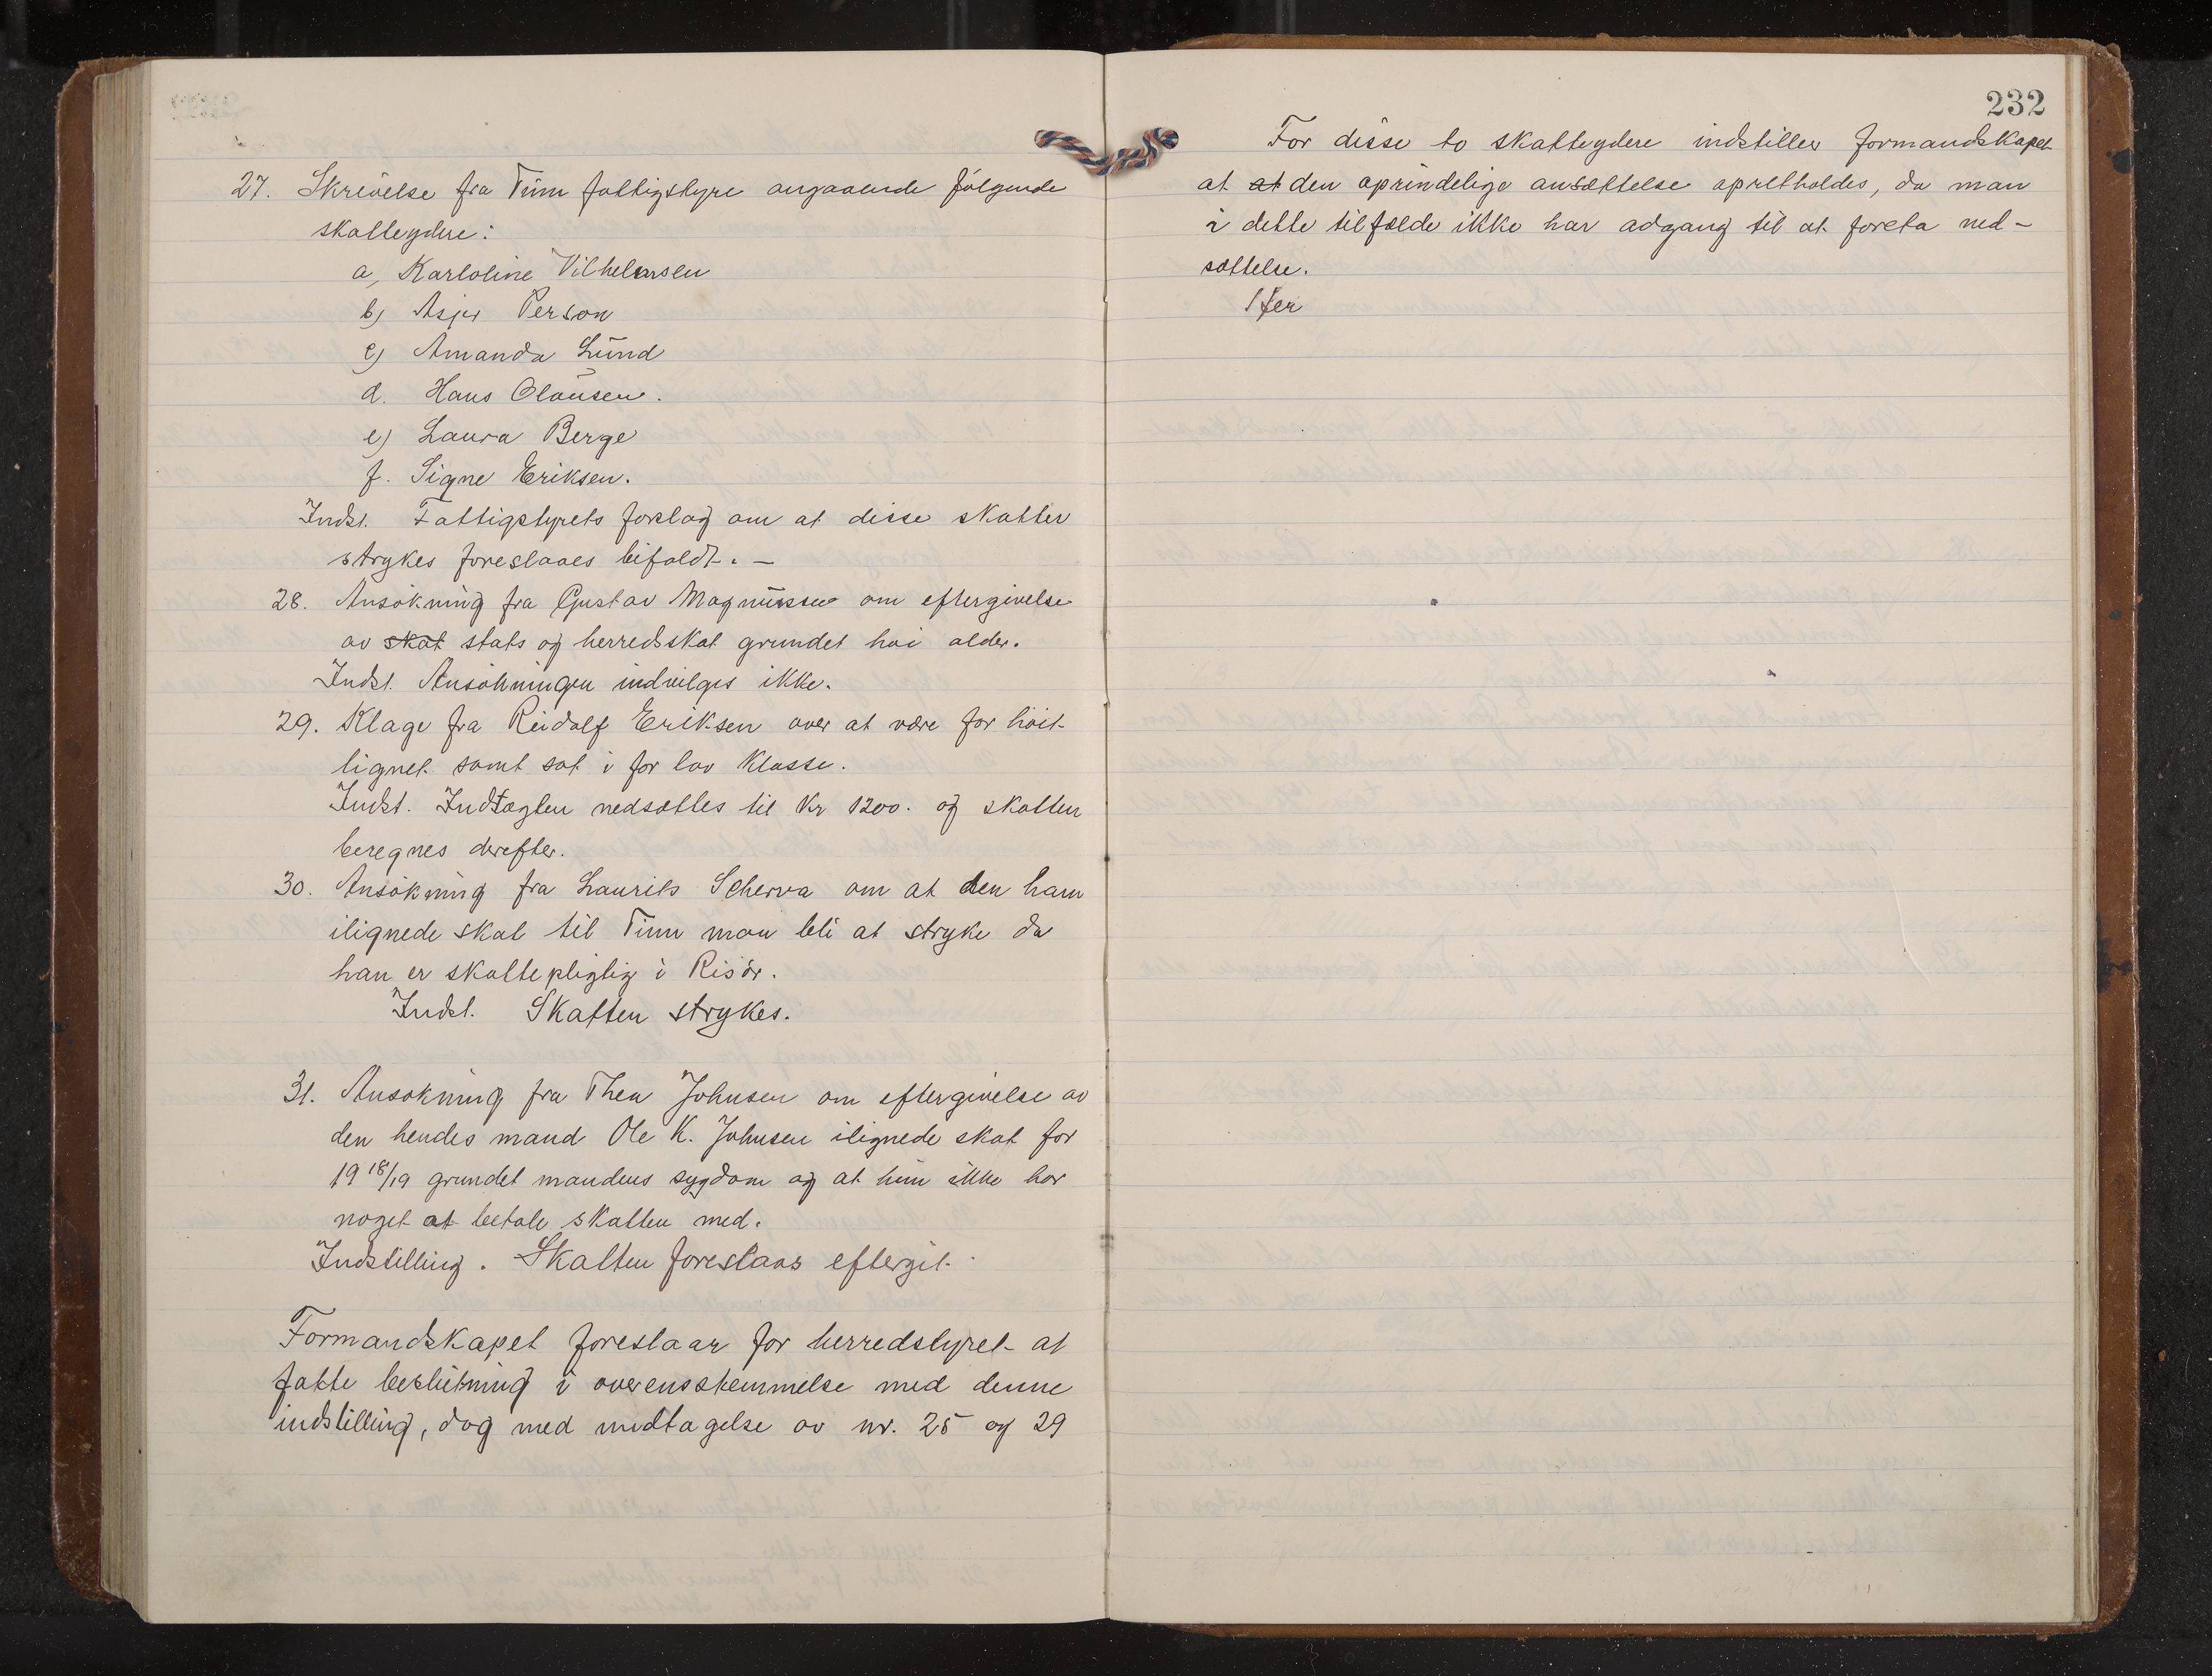 27. Skrivelse fra Tinn fattigstyre angaaende følgende
skatteydere:
a, Karloline Vilhelmsen
b) Person
c) Amanda Lund
d. Hans Olausen.
e) Laura Berge
f. Signe Eriksen.
Indst. Fattigstyrets forslag om at disse skatter
strykes foreslaaes bifaldt. —
28. Ansøkning fra Gustav Magnussen om eftergivelse
av skat stats og herredsskat grundet høi alder.
Indst. Ansøkningen indvilges ikke.
29. Klage fra Reidolf Eriksen over at være for høit
lignet samt sat i for lav klasse.
Indst. Indtægten nedsættes til Kr 1200. og skatten
beregnes derefter.
30. Ansøkning fra Laurits Scherva om at den ham
ilignede skat til Tinn maa bli at stryke da
han er skattepligtig i Risør.
Indst. Skatten strykes.
31. Ansøkning fra Thea Johnsen om eftergivelse av
den hendes mand Ole K. Johnsen ilignede skat for
19 18/19 grundet mandens sygdom og at hun ikke har
noget at betale skatten med.
Indstilling. Skatten foreslaas eftergit.
Formandskapet foreslaar for herredstyret at
fatte beslutning i overensstemmelse med denne
indstilling, dog med undtagelse av nr. 25 og 29
232
For disse to skatteydere indstiller formandskapet
at at den oprindelige ansættelse opretholdes, da man
i dette tilfælde ikke har adgang til at foreta ned-
sættelse.